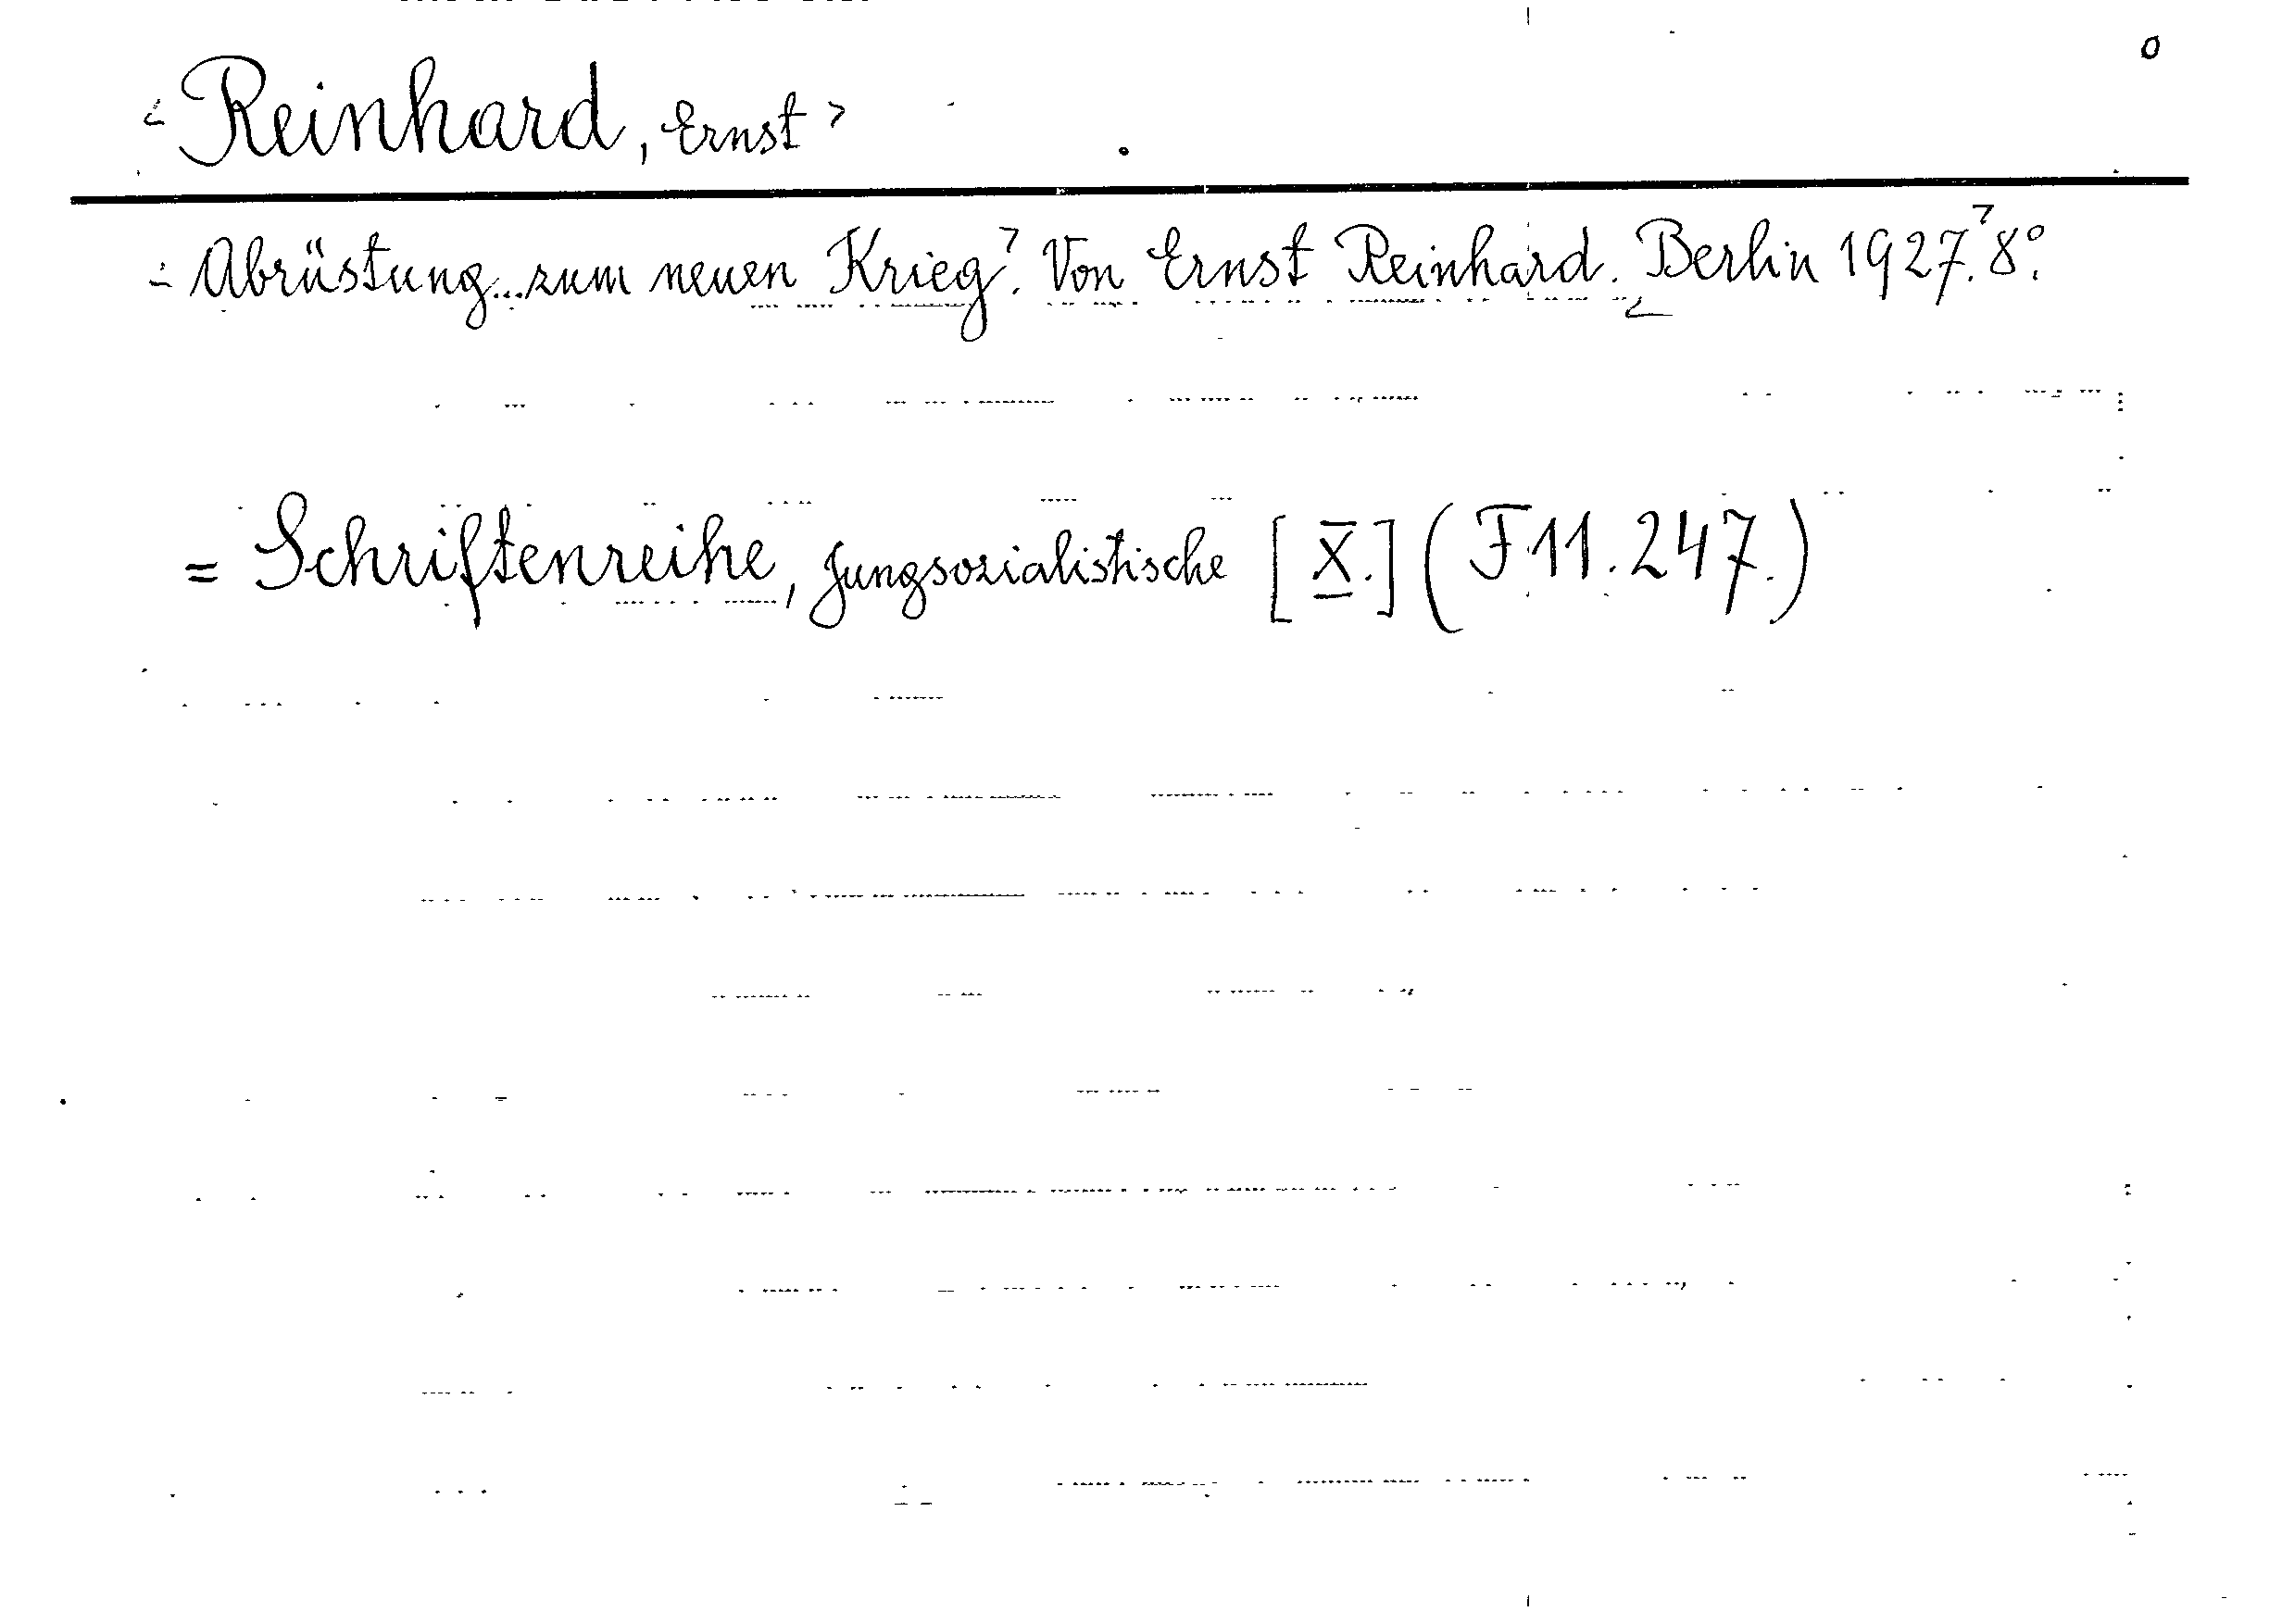 < Reinhard, Ernst >
Abrüstung...zum neuen Krieg? Von Ernst Reinhard. Berlin 1927. 8°.
= Schriftenreihe, Jungsozialistische [X.] (F11.247.)